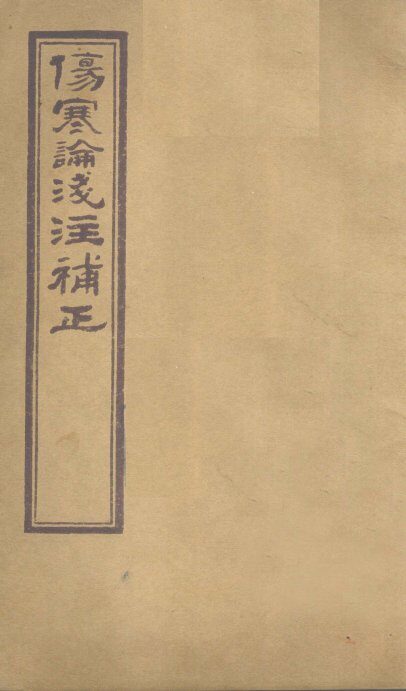 傷寒論淺注補正